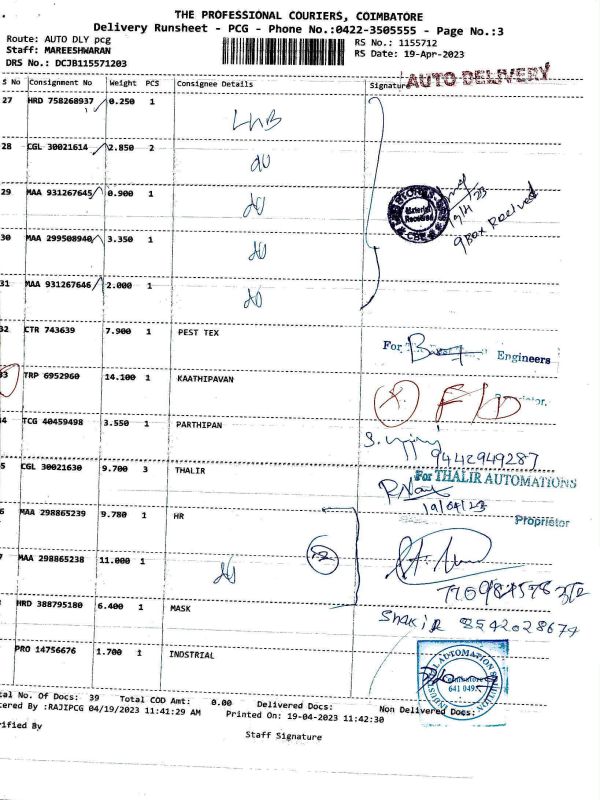 THE PROFESSIONAL COURIERS, COIMBATORE
Delivery Runsheet - PCG - Phone No.:0422-3505555 - Page No.:3
Route: AUTO DLY pcg
RS No.: 1155712
Staff: MAREESHWARAN
RS Date: 19-Apr-2023
DRS No.: DCJB115571203
AUTO DELIVERY
S No Consignment No Weight PCS Consignee Details Signature
27 HRD 758268937 0.250 1 LNB
28 CGL 30021614 2.850 2 do
29 MAA 931267645 0.900 1 do
Material Received
CBE
19/4/23
9 Box Received
30 MAA 299508940 3.350 1 do
31 MAA 931267646 2.000 1 do
32 CTR 743639 7.900 1 PEST TEX
For Engineers
33 TRP 6952960 14.100 1 KAATHIPAVAN
F/D
4 TCG 40459498 3.550 1 PARTHIPAN
9442949287
5 CGL 30021630 9.700 3 THALIR
For THALIR AUTOMATIONS
19/04/23
Proprietor
6 MAA 298865239 9.780 1 HR
7 MAA 298865238 11.000 1 do
HRD 388795180 6.400 1 MASK
Shakir 8542028674
PRO 14756676 1.700 1 INDSTRIAL
Coimbatore
641 049
tal No. Of Docs: 39 Total COD Amt: 0.00 Delivered Docs: Non Delivered Docs:
tered By :RAJIPCG 04/19/2023 11:41:29 AM Printed On: 19-04-2023 11:42:30
rified By Staff Signature